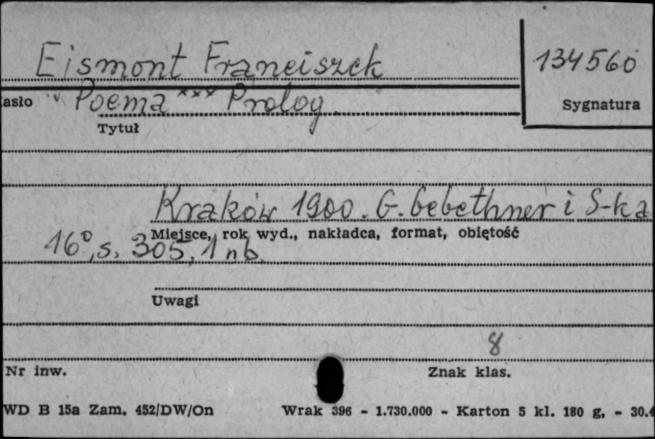 Eismont Franciszek
134560
asło
Poema *** Prolog
Sygnatura
Tytuł
Kraków 1900. G. Gebethner i S-ka
Miejsce, rok wyd., nakładca, format, objętość
16°, s. 305, 1 nb.
Uwagi
8
Nr inw.
Znak klas.
WD B 15a Zam. 452/DW/On
Wrak 396 - 1.730.000 - Karton 5 kl. 180 g, - 30.4